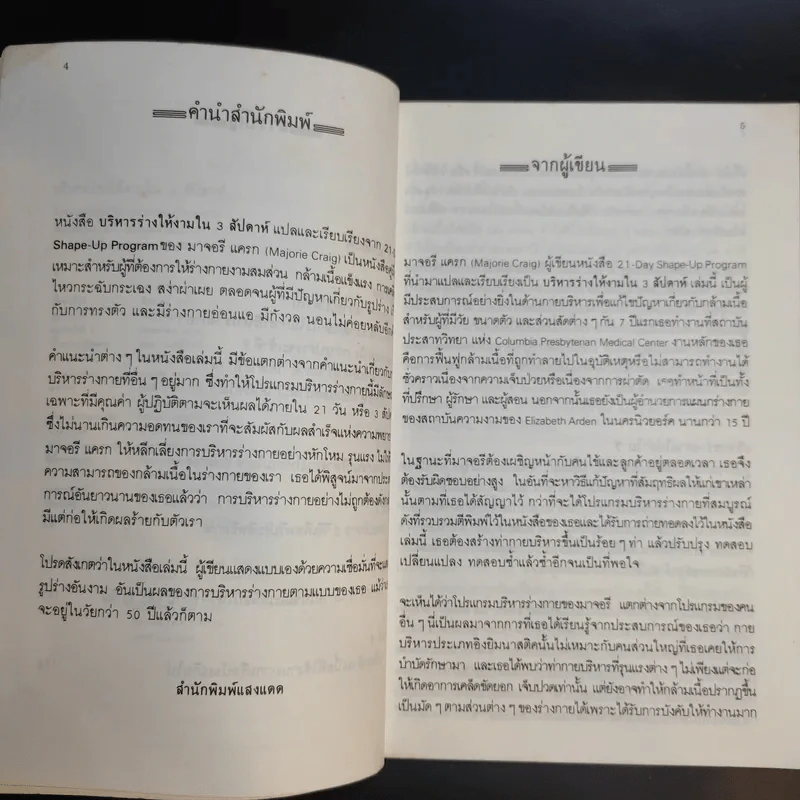 4
คำนำสำนักพิมพ์
หนังสือ บริหารร่างให้งามใน 3 สัปดาห์ แปลและเรียบเรียงจาก 21-
Shape-Up Program ของ มาจอรี แครก (Majorie Craig) เป็นหนังสือ
เหมาะสำหรับผู้ที่ต้องการให้ร่างกายงามสมส่วน กล้ามเนื้อแข็งแรง
ไหวกระฉับกระเฉง สง่าผ่าเผย ตลอดจนผู้ที่มีปัญหาเกี่ยวกับรูปร่าง
กับการทรงตัว และมีร่างกายอ่อนแอ มีกังวล นอนไม่ค่อยหลับอีก
คำแนะนำต่าง ๆ ในหนังสือเล่มนี้ มีข้อแตกต่างจากคำแนะนำเกี่ยวกับ
บริหารร่างกายที่อื่น ๆ อยู่มาก ซึ่งทำให้โปรแกรมบริหารร่างกายนี้มีลักษ
เฉพาะที่มีคุณค่า ผู้ปฏิบัติตามจะเห็นผลได้ภายใน 21 วัน หรือ 3 สัป
ซึ่งไม่นานเกินความอดทนของเราที่จะสัมผัสกับผลสำเร็จแห่งความพยา
มาจอรี แครก ให้หลีกเลี่ยงการบริหารร่างกายอย่างหักโหม รุนแรง ไม่ให้
ความสามารถของกล้ามเนื้อในร่างกายของเรา เธอได้พิสูจน์มาจากประส
การณ์อันยาวนานของเธอแล้วว่า การบริหารร่างกายอย่างไม่ถูกต้อง
มีแต่ก่อให้เกิดผลร้ายกับตัวเรา
โปรดสังเกตว่าในหนังสือเล่มนี้ ผู้เขียนแสดงแบบเองด้วยความเชื่อมั่นที่จะ
รูปร่างอันงาม อันเป็นผลของการบริหารร่างกายตามแบบของเธอ แม้ว่า
จะอยู่ในวัยกว่า 50 ปีแล้วก็ตาม
สำนักพิมพ์แสงแดด
5
จากผู้เขียน
มาจอรี แครก (Majorie Craig) ผู้เขียนหนังสือ 21-Day Shape-Up Program
ที่นำมาแปลและเรียบเรียงเป็น บริหารร่างให้งามใน 3 สัปดาห์ เล่มนี้ เป็นผู้
มีประสบการณ์อย่างยิ่งในด้านกายบริหารเพื่อแก้ไขปัญหาเกี่ยวกับกล้ามเนื้อ
สำหรับผู้ที่มีวัย ขนาดตัว และส่วนสัดต่าง ๆ กัน 7 ปีแรกเธอทำงานที่สถาบัน
ประสาทวิทยา แห่ง Columbia Presbyterian Medical Center งานหลักของเธอ
คือการฟื้นฟูกล้ามเนื้อที่ถูกทำลายไปในอุบัติเหตุหรือไม่สามารถทำงานได้
ชั่วคราวเนื่องจากความเจ็บป่วยหรือเนื่องจากการผ่าตัด เธอทำหน้าที่เป็นทั้ง
ที่ปรึกษา ผู้รักษา และผู้สอน นอกจากนั้นเธอยังเป็นผู้อำนวยการแผนกร่างกาย
ของสถาบันความงามของ Elizabeth Arden ในนครนิวยอร์ค นานกว่า 15 ปี
ในฐานะที่มาจอรีต้องเผชิญหน้ากับคนไข้และลูกค้าอยู่ตลอดเวลา เธอจึง
ต้องรับผิดชอบอย่างสูง ในอันที่จะหาวิธีแก้ปัญหาที่สัมฤทธิผลให้แก่เขาเหล่า
นั้นตามที่เธอได้สัญญาไว้ กว่าที่จะได้โปรแกรมบริหารร่างกายที่สมบูรณ์
ดังที่รวบรวมตีพิมพ์ไว้ในหนังสือของเธอและได้รับการถ่ายทอดลงไว้ในหนังสือ
เล่มนี้ เธอต้องสร้างท่ากายบริหารขึ้นเป็นร้อย ๆ ท่า แล้วปรับปรุง ทดสอบ
เปลี่ยนแปลง ทดสอบซ้ำแล้วซ้ำอีกจนเป็นที่พอใจ
จะเห็นได้ว่าโปรแกรมบริหารร่างกายของมาจอรี แตกต่างจากโปรแกรมของคน
อื่น ๆ นี่เป็นผลมาจากการที่เธอได้เรียนรู้จากประสบการณ์ของเธอว่า กาย
บริหารประเภทอิงยิมนาสติคนั้นไม่เหมาะกับคนส่วนใหญ่ที่เธอเคยให้การ
บำบัดรักษามา และเธอได้พบว่าท่ากายบริหารที่รุนแรงต่าง ๆ ไม่เพียงแต่จะก่อ
ให้เกิดอาการเคล็ดขัดยอก เจ็บปวดเท่านั้น แต่ยังอาจทำให้กล้ามเนื้อปรากฏขึ้น
เป็นมัด ๆ ตามส่วนต่าง ๆ ของร่างกายได้เพราะได้รับการบังคับให้ทำงานมาก